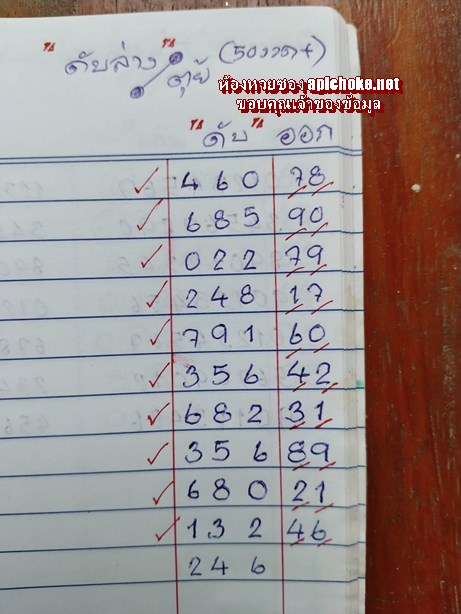 "น ดับล่าง "น (50งวด+)
ตุย์
ห้องหวยซอง apichoke.net
ขอบคุณเจ้าของข้อมูล
"น ดับ "น ออก
460 78
685 90
022 79
248 17
791 60
356 42
682 31
356 89
680 21
132 46
246